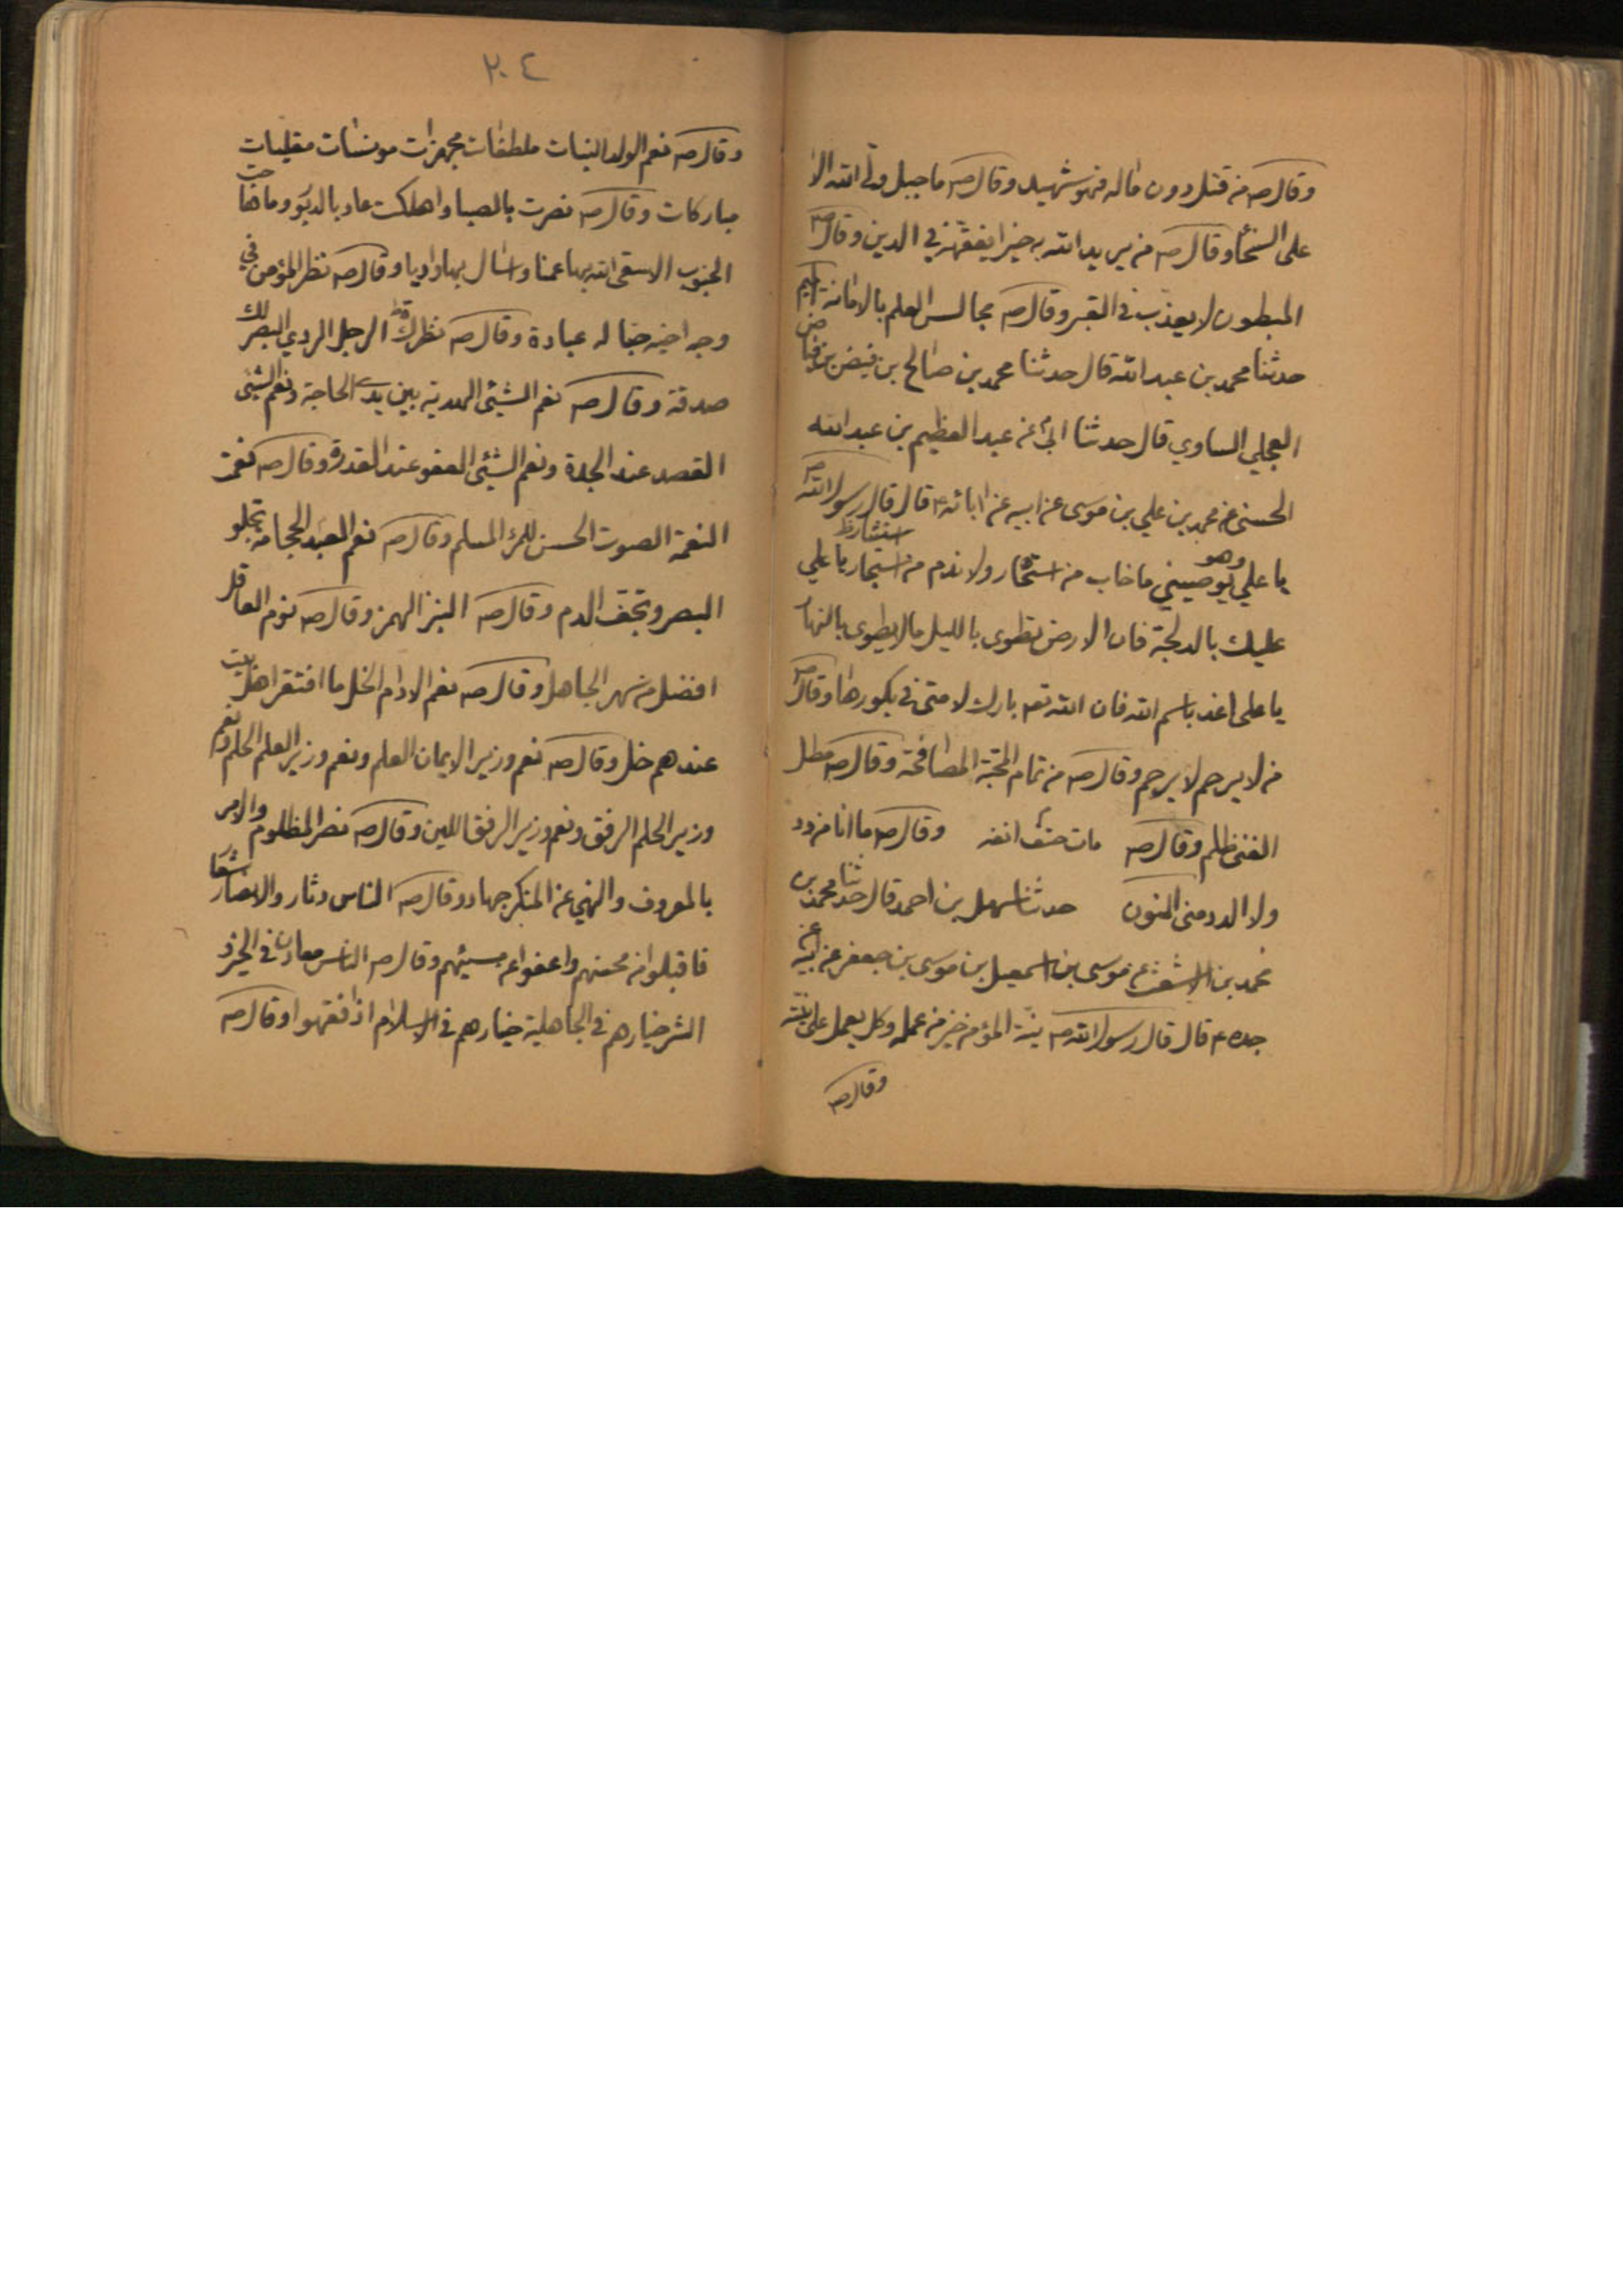 وقال صه من قتل دون ماله فهو شهيد وقال صه ما جبل ولى الله الا
على السخا وقال صه من يريد الله به خيرا يفقهه في الدين وقال صه
المبطون لا يعذب في القبر وقال صه مجالس العلم بالامانة
حدثنا محمد بن عبد الله قال حدثنا محمد بن صالح بن فيض بن فياض
العجلي الساوي قال حدثنا ابي عن عبد العظيم بن عبد الله
الحسني عن محمد بن علي بن موسى عن ابيه عن ابائه ع قال قال رسول الله صه
يا علي وهو يوصيني ما خاب من استخار ولا ندم من استجار استشار ظ يا علي
عليك بالدلجة فان الارض تطوى بالليل مالا يطوى بالنهار
يا علي اغد باسم الله فان الله تعه بارك لامتي في بكورها وقال صه
من لا يرحم لا يرحم وقال صه من تمام المحبة المصافحة وقال صه مطل
الغني ظلم وقال صه مات حتف انفه وقال صه ما انا من دد
ولا الدد مني المنون حدثنا سهل بن احمد قال حدثنا محمد بن
محمد بن الاشعث عن موسى بن اسمعيل بن موسى بن جعفر عن ابيه عن
جده ع قال قال رسول الله صه نية المؤمن خير من عمله وكل يعمل على نيته
وقال صه
٢٠٤
وقال صه نعم الولد البنات ملطفات مجهزات مونسات مفليات
مباركات وقال صه نصرت بالصبا واهلكت عاد بالدبور وما هاجت
الجنوب الا سقى الله بها عمنا واسال بها واديا وقال صه نظر المؤمن في
وجه اخيه حبا له عبادة وقال صه نظرك الرجل الردي البصر لك
صدقة وقال صه نعم الشيئ الهدية بين يدي الحاجة ونعم الشيئ
القصد عند الجدة ونعم الشيئ العفو عند القدرة وقال صه نعمت
النغمة الصوت الحسن للمرء المسلم وقال صه نعم العبد الحجامة تجلو
البصر وتجفف الدم وقال صه النبز الهمز وقال صه نوم العاقل
افضل من سهر الجاهل وقال صه نعم الادام الخل ما افتقر اهل بيت
عندهم خل وقال صه نعم وزير الايمان العلم ونعم وزير العلم الحلم ونعم
وزير الحلم الرفق ونعم وزير الرفق اللين وقال صه نصر المظلوم والامر
بالمعروف والنهي عن المنكر جهاد وقال صه الناس دثار والانصار شعار
فاقبلوا من محسنهم واعفوا عن مسيئهم وقال صه الناس معادن في الخير و
الشر خيارهم في الجاهلية خيارهم في الاسلام اذا فقهوا وقال صه